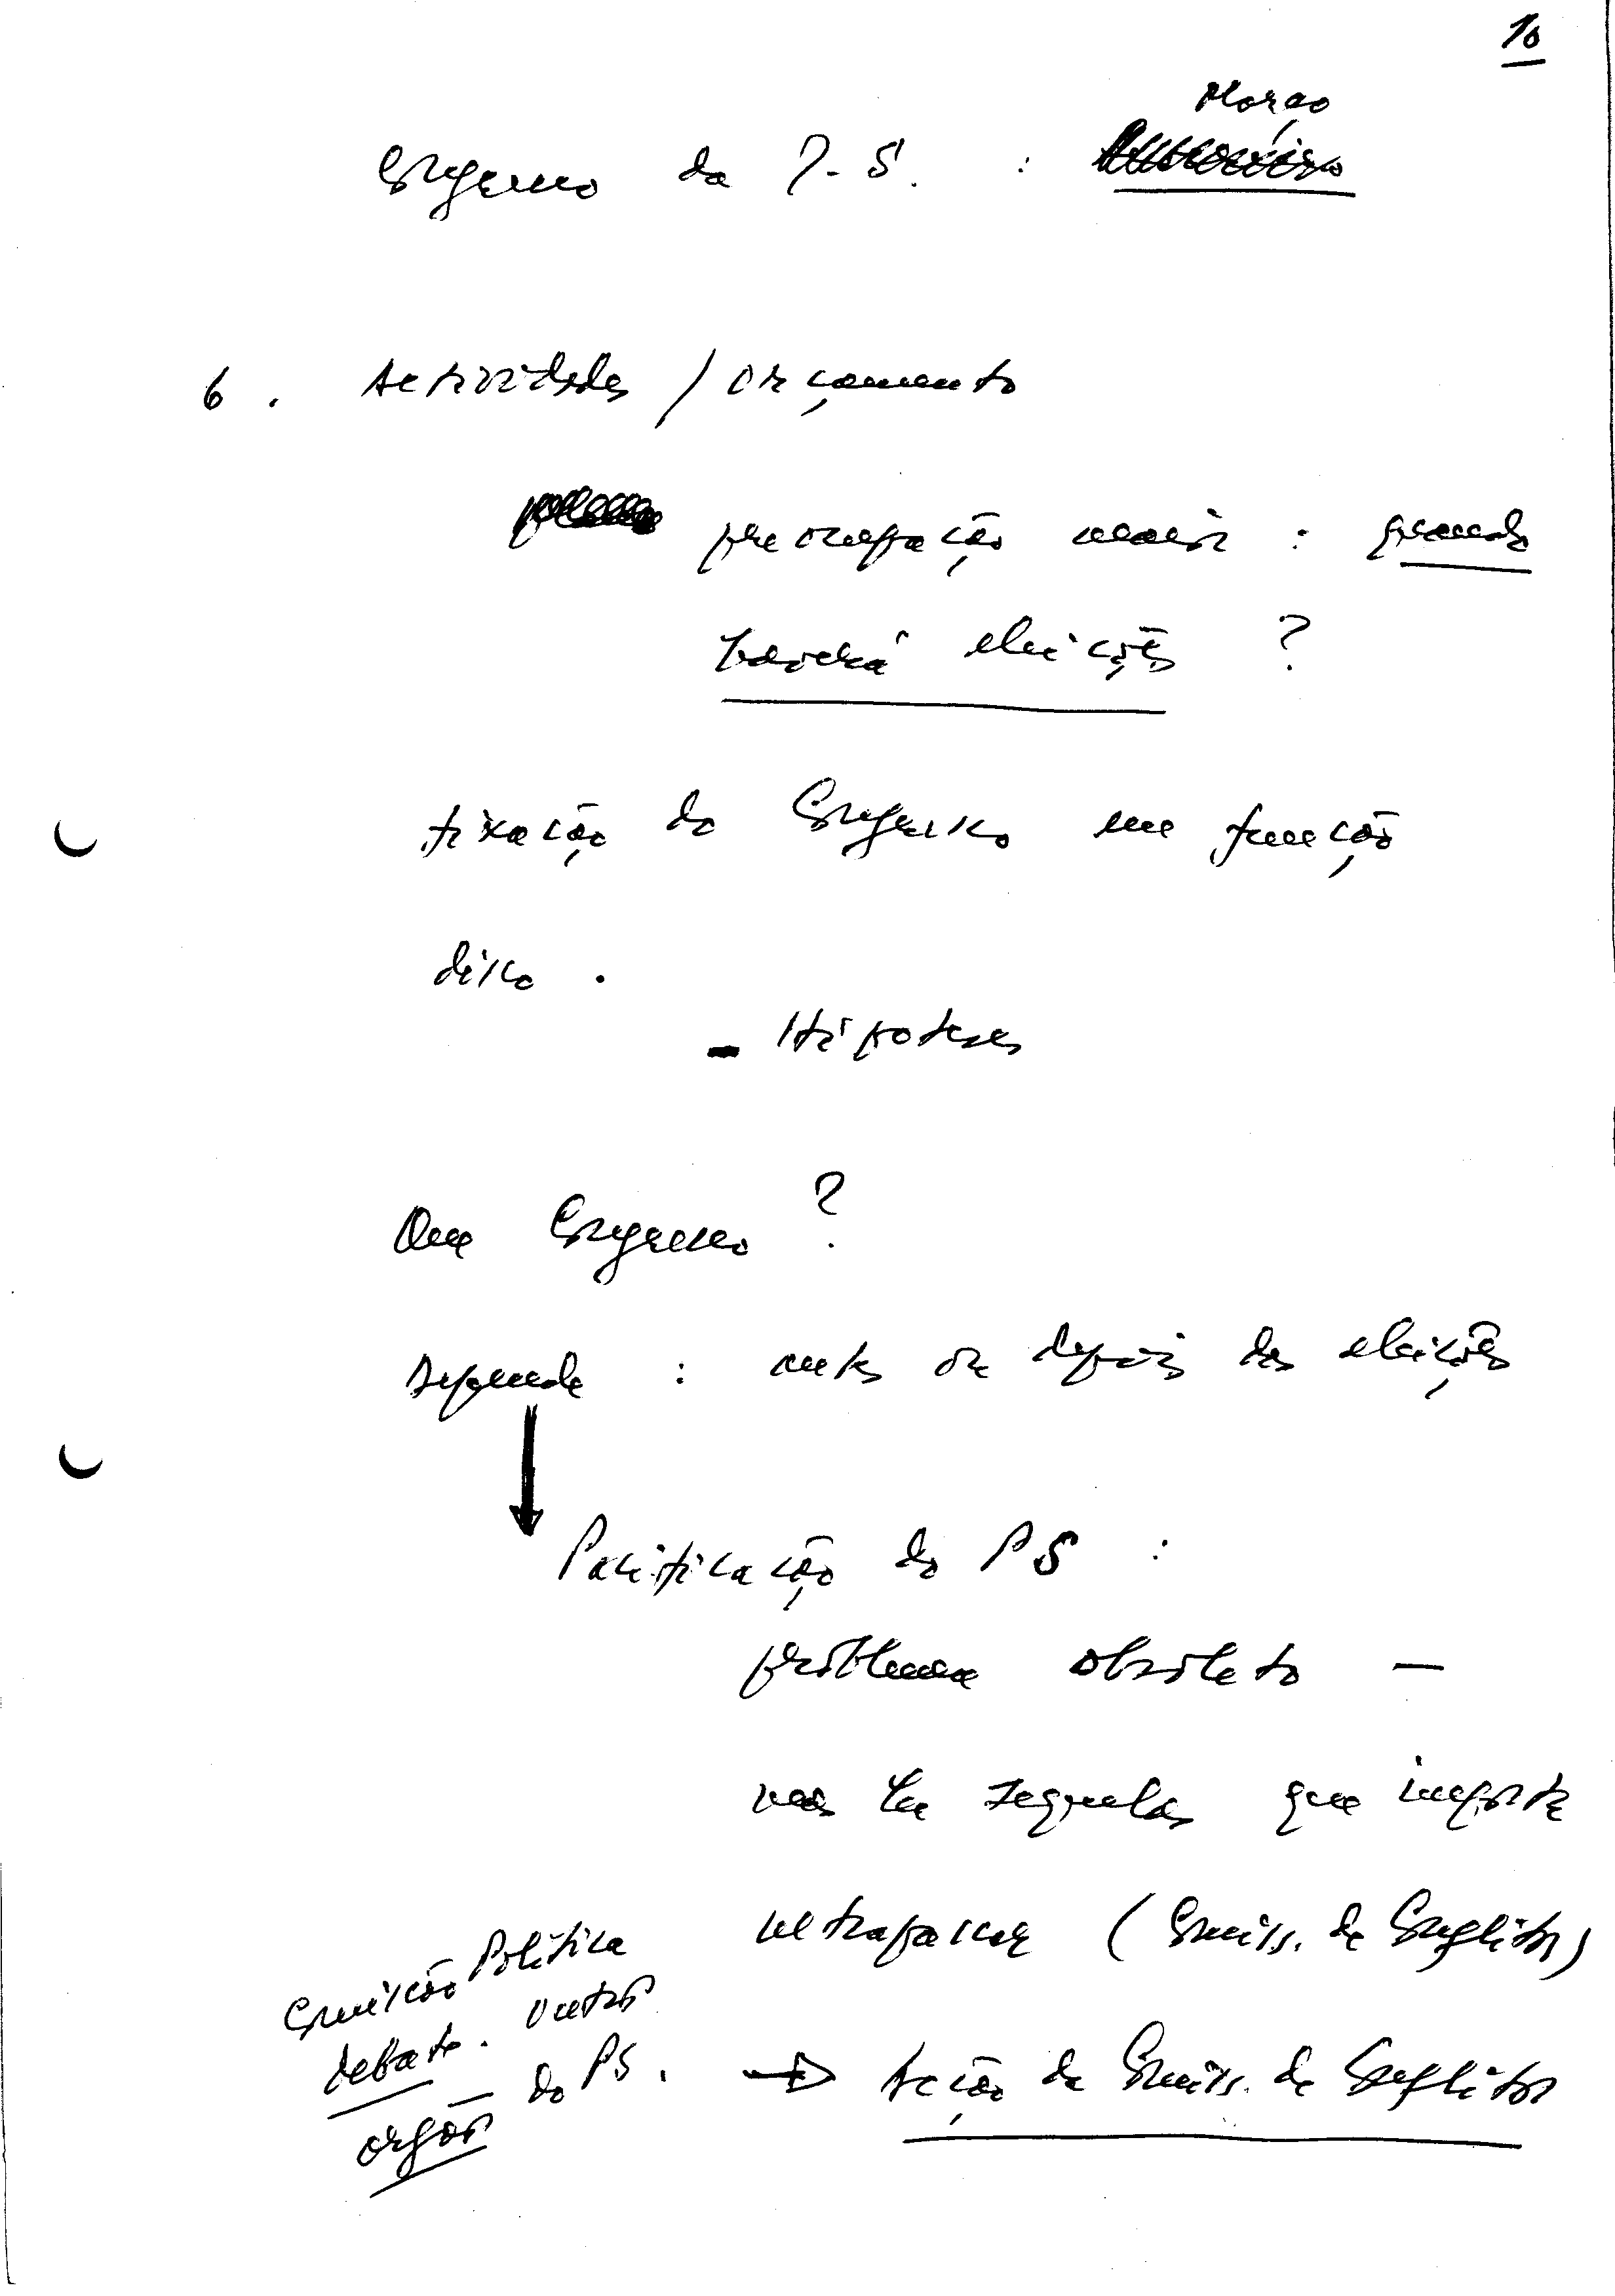 10
Março
Congresso da I.S. :
6. Actividades / orçamento
preocupação maior : quando
haverá eleições ?
fixação do Congresso em função
disso.
- Hipoteses
Que Congresso ?
Depende : antes ou depois das eleições
Pacificação do PS :
problema obsoleto —
mas há sequelas que importa
ultrapassar (Comiss. de Conflitos)
Comissão Política
debate. outros
orgãos do PS. → Acção da Comiss. de Conflitos